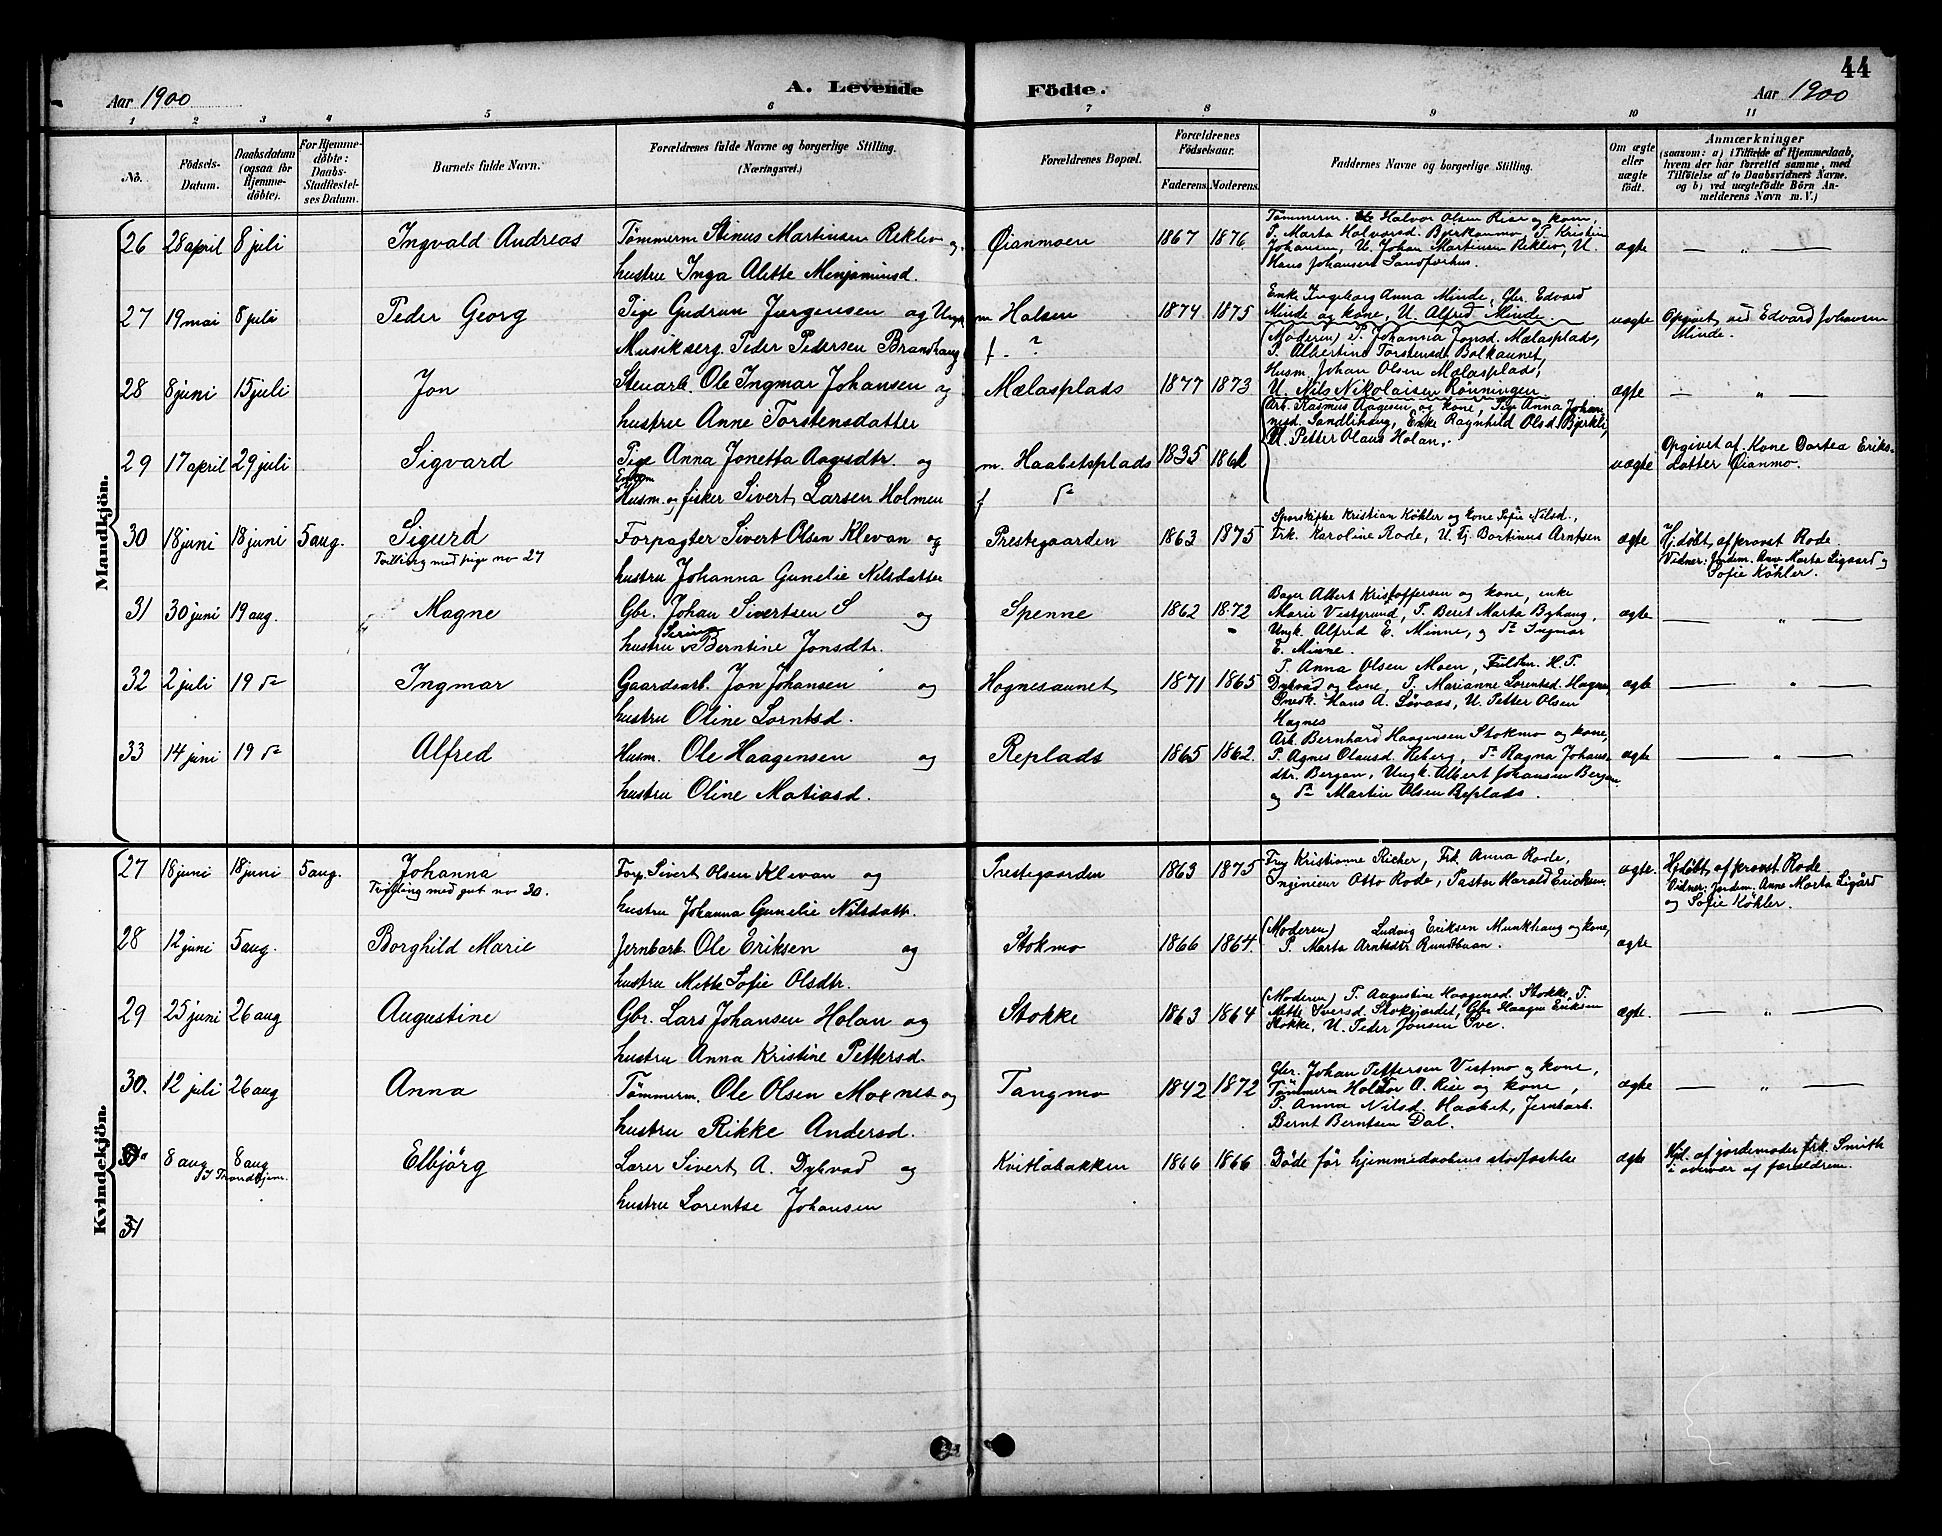 44
Aar 1900
A. Levende Födte.
Aar 1900
1 2 3 4 5 6 7 8 9 10 11
No.
Födsels-Datum.
Daabsdatum (ogsaa for Hjemme-döbte).
For Hjemme-döbte: Daabs-Stadfæstel-ses Datum.
Barnets fulde Navn.
Forældrenes fulde Navne og borgerlige Stilling.
(Næringsvei.)
Forældrenes Bopæl.
Forældrenes Födselsaar.
Faderens. Moderens.
Faddernes Navne og borgerlige Stilling.
Om ægte eller uægte födt.
Anmærkninger
(saasom: a) i Tilfælde af Hjemmedaab,
hvem der har forrettet samme, med
Tilföielse af to Daabsvidners Navne.
og b) ved uægtefödte Börn An-
melderens Navn m. V.)
Mandkjön.
26 28 april 8 juli Ingvald Andreas
Tømmerm Stinus Martinsen Reklev og
hustru Inga Alette Menjaminsd.
Øianmoen 1867 1876
Tømmerm. Ole Halvor Olsen Rise og kone,
P. Marta Halvorsd. Bjerkanmo, P. Kristine
Johansen, U. Johan Martinsen Reklev, U.
Hans Johansen Sandforhus.
ægte — „ —
27 19 mai 8 juli Peder Georg
Pige Gudrun Jørgensen og Ungk
Musikserg. Peder Pedersen Brandhaug
m Halsen
f. - ?
1874 1875
Enke Ingeborg Anna Minde, Gbr. Edvard
Minde og kone, U. Alfred Minde.
uægte Opgivet ved Edvard Johansen
Minde.
28 8 juni 15 juli Jon
Stenarb. Ole Ingmar Johansen og
hustru Anne Torstensdatter
Mælasplads 1877 1873
(Moderen) P. Johanna Jonsd. Mælasplads,
P. Albertine Torstensd. Bolkaunet,
Husm. Johan Olsen Mælasplads,
U. Nils Nikolaisen Rønningen
ægte — „ —
29 17 april 29 juli Sigvard
Pige Anna Jonetta Aagesdtr. og
Enkem
Husm. og fisker Sivert Larsen Holmen
m. Haabetsplads
f do
1835 1861
Arb. Rasmus Aagesen og kone, Pige Anna Johan
nesd. Sandlihaug, Enke Ragnhild Olsd. Bjerkli,
U. Petter Olaus Holan.
uægte Opgivet af Kone Dortea Eriks-
datter Øianmo.
30 18 juni 18 juni 5 aug. Sigurd
Tvilling med pige no 27
Forpagter Sivert Olsen Klevan og
hustru Johanna Gunelie Nilsdatter
Prestegaarden 1863 1875
Sporskifte Kristian Køhler og kone Sofie Nilsd.,
Frk. Karoline Rode, U. Tj. Bortinus Arntsen
ægte Hj.døbt af provst Rode.
Vidner: Jordm. Ane Marta Ligaard og
Sofie Køhler.
31 30 juni 19 aug. Magne
Gbr. Johan Sivertsen S og
Serina
hustru Berntine Jonsdtr.
Spenne 1862 1872
Bager Albert Kristoffersen og kone, enke
Marie Vestgrund, P. Beret Marta Byhaug,
Ungk. Alfred E. Minne, og do Ingmar
E. Minne.
ægte — „ —
32 2 juli 19 do Ingmar
Gaardsarb. Jon Johansen og
hustru Oline Lorntsd.
Hognesaunet 1871 1865
P. Anna Olsen Moen, Fuldm. H. T.
Dyhvad og kone, P. Marianne Lorentsd. Hagnes,
Snedk. Hans A. Løvaas, U. Petter Olsen
Hagnes
ægte — „ —
33 14 juni 19 do Alfred
Husm. Ole Haagensen og
hustru Oline Matiasd.
Replads 1865 1862.
Arb. Bernhard Haagensen Stokmo og kone,
P. Agnes Olausd. Reberg, do Ragna Johans-
dtr. Bergan, Ungk. Albert Johansen Bergan
og do Martin Olsen Replads.
ægte — „ —
Kvindekjön.
27 18 juni 18 juni 5 aug. Johanna
Tvilling med gut no 30.
Forp. Sivert Olsen Klevan og
hustru Johanna Gunelie Nilsdattr.
Prestegaarden 1863 1875
Fru Kristianne Richer, Frk. Anna Rode,
Ingeniør Otto Rode, Pastor Harald Ericksen.
ægte. Hjdøbt af provst Rode
Vidner: Jordem. Ane Marta Ligård
og Sofie Køhler.
28 12 juni 5 aug. Borghild Marie
Jernbarb. Ole Eriksen og
hustru Mette Sofie Olsdtr.
Stokmo 1866 1864.
(Moderen) Ludvig Eriksen Munkhaug og kone,
P. Marta Arntsdtr Rundbuan.
ægte
29 25 juni 26 aug Augustine
Gbr. Lars Johansen Holan og
hustru Anna Kristine Pettersd.
Stokke 1863 1864
(Moderen) P. Augustine Haagensd. Stokke, P.
Mette Iversd. Stokjardet, Gbr Haagen Eriksen
Stokke, U. Peder Jonsen Sve.
ægte. — „ —
30. 12 juli 26 aug Anna
Tømmerm. Ole Olsen Moxnes og
hustru Rikke Andersd.
Tangmo 1842 1872
Gbr. Johan Pettersen Vistmo og kone,
Tømmerm Halvor A. Rise og kone,
P. Anna Nilsd. Haabet, Jernbarb.
Bernt Berntsen Dal.
ægte — „ —
8 aug 8 aug Elbjørg
I Trondhjem.
Lærer Sivert A. Dyhvad og
hustru Lorentse Johansen
Kvitlabakken 1866 1866
Døde før hjemmedaabens stadfæstelse
ægte Hjd. af jordemoder frk. Smith
i overvær af forældrene.
31